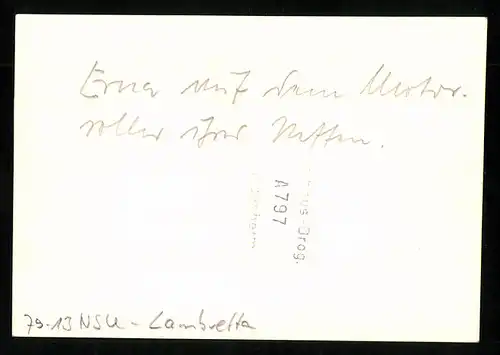 Erna auf dem Motor-
roller ihres Neffen.
-Drog.
A797
79-13 NSU - Lambretta